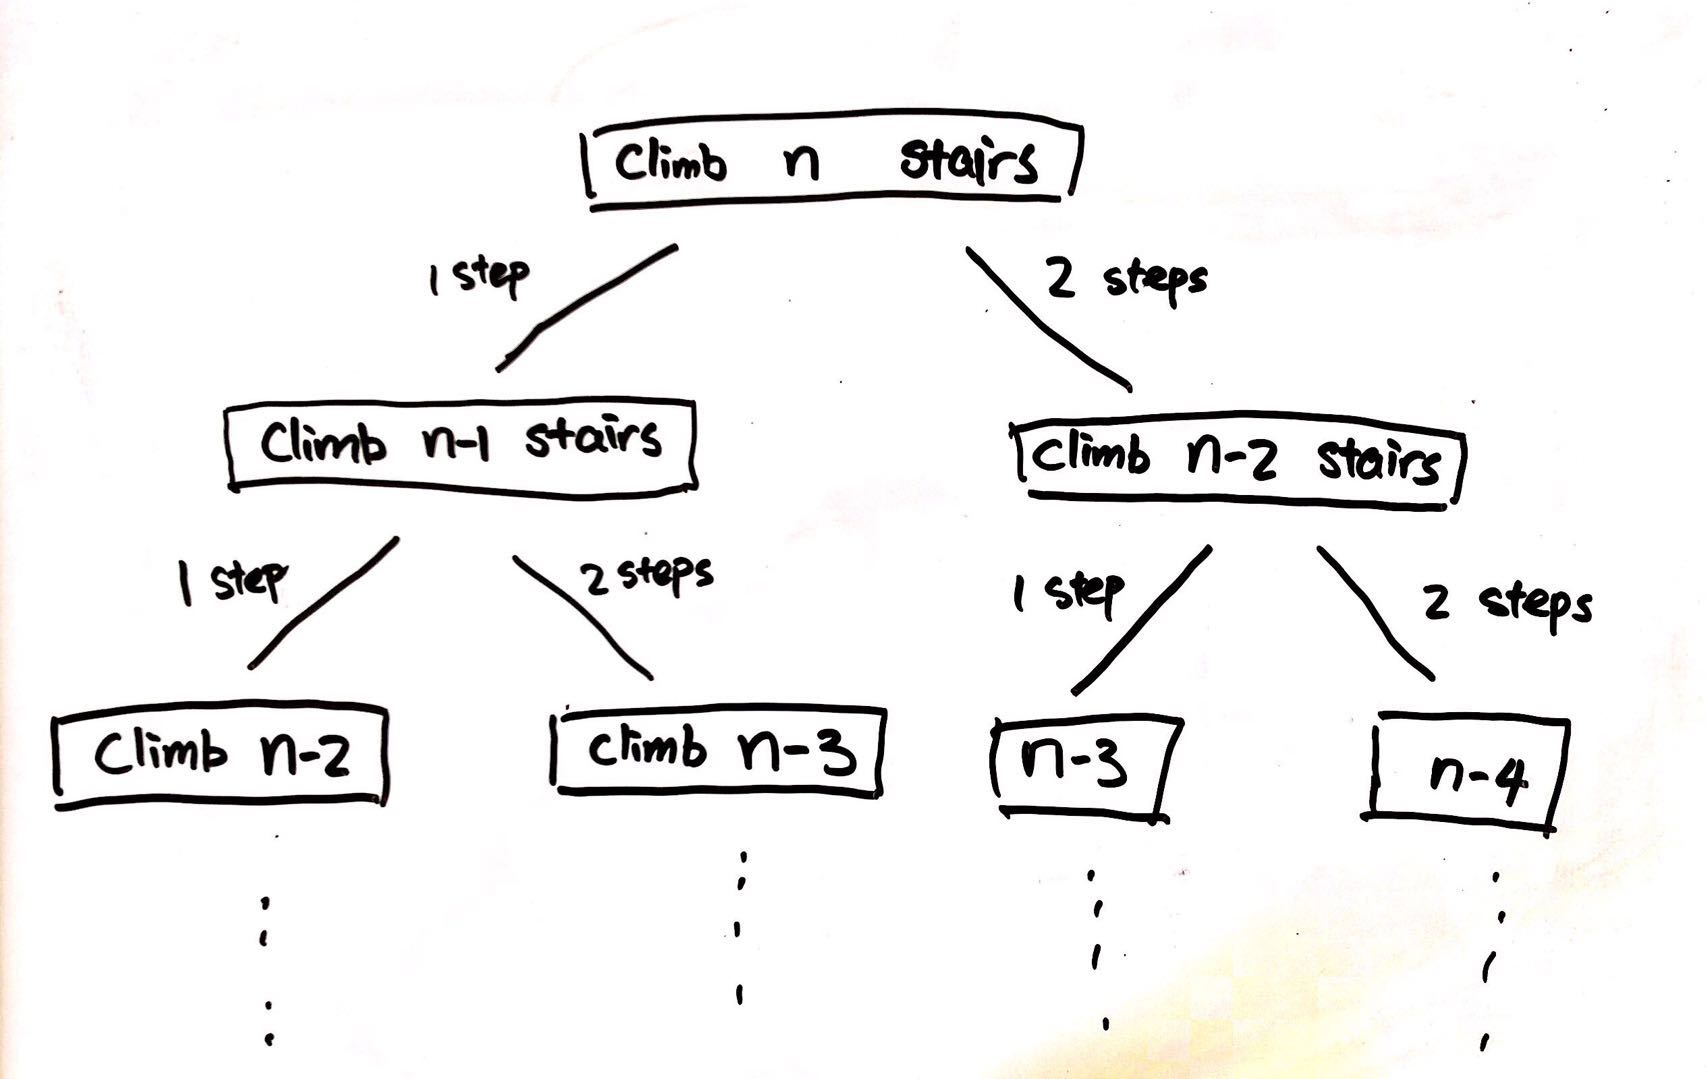 Climb n stairs
1 step
2 steps
Climb n-1 stairs
Climb n-2 stairs
1 step
2 steps
1 step
2 steps
Climb n-2
Climb n-3
n-3
n-4